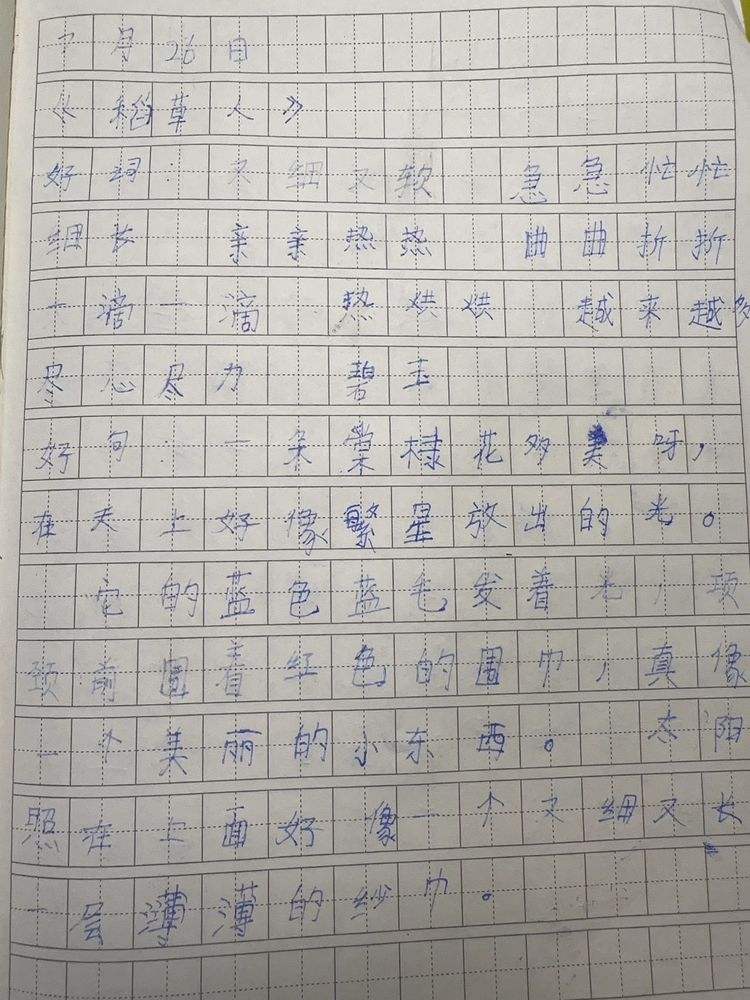 7月26日
《稻草人》
好词: 又细又软 急急忙忙
细长 亲亲热热 曲曲折折
一滴一滴 热烘烘 越来越多
尽心尽力 碧玉
好句: 一朵棠棣花多美呀,
在天上好像繁星放出的光。
它的蓝色蓝毛发着光,项
颈前围着红色的围巾,真像
一个美丽的小东西。 太阳
照在上面好像一个又细又长
一层薄薄的纱巾。